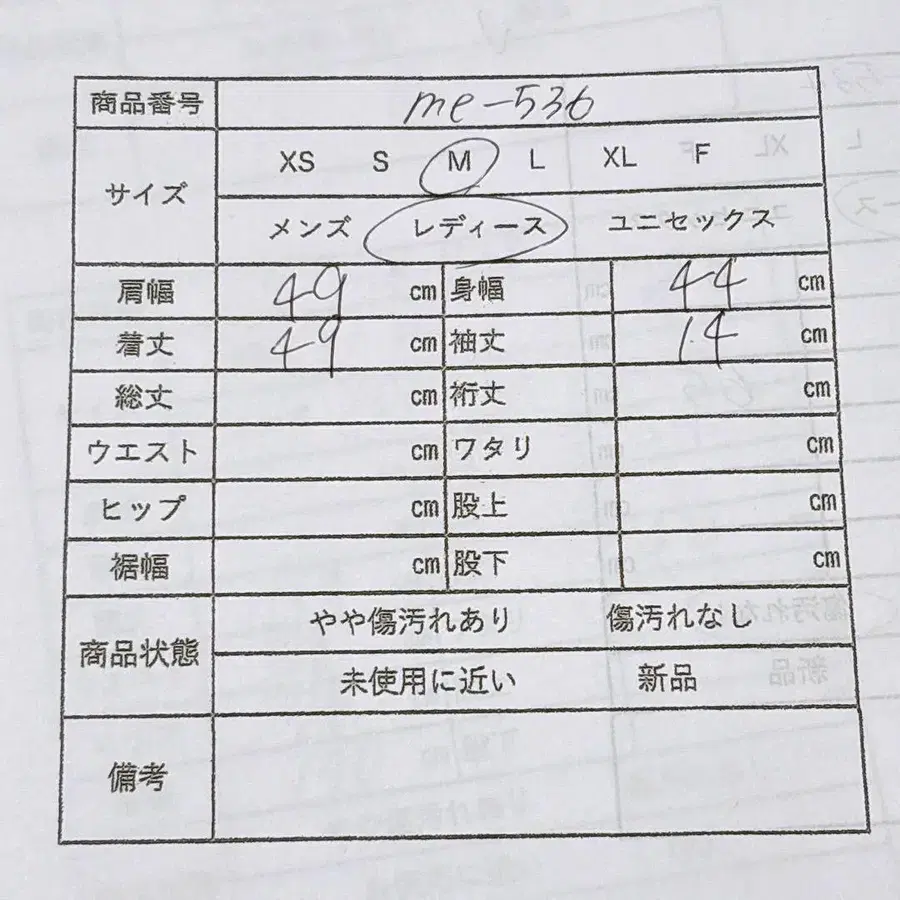 商品番号 me-536
サイズ XS S M L XL F
メンズ レディース ユニセックス
肩幅 49 cm 身幅 44 cm
着丈 49 cm 袖丈 14 cm
総丈 cm 裄丈 cm
ウエスト cm ワタリ cm
ヒップ cm 股上 cm
裾幅 cm 股下 cm
商品状態 やや傷汚れあり 傷汚れなし
未使用に近い 新品
備考